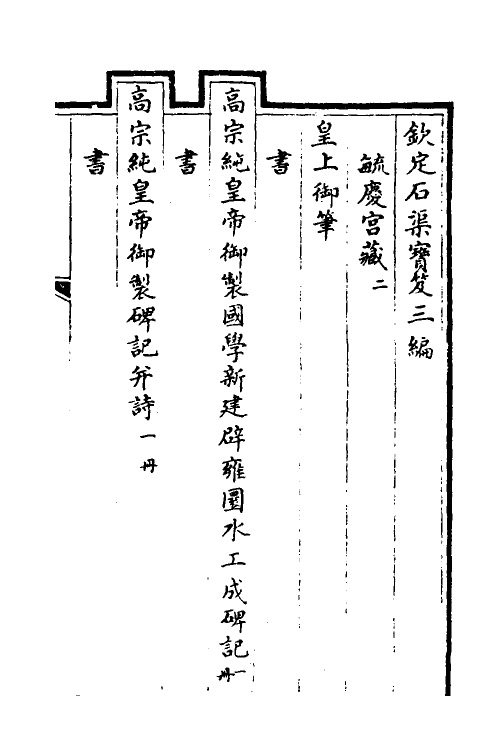 欽定石渠寶笈三編
毓慶宮藏二
皇上御筆
書
高宗純皇帝御製國學新建辟雍圜水工成碑記一冊
書
高宗純皇帝御製碑記并詩一冊
書